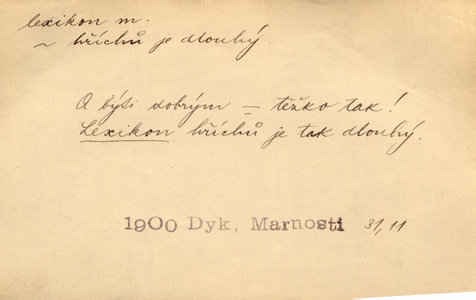 lexikon m.
~ hříchů je dlouhý.
A býti dobrým – těžko tak!
Lexikon hříchů je tak dlouhý.
1900 Dyk, Marnosti 31,11